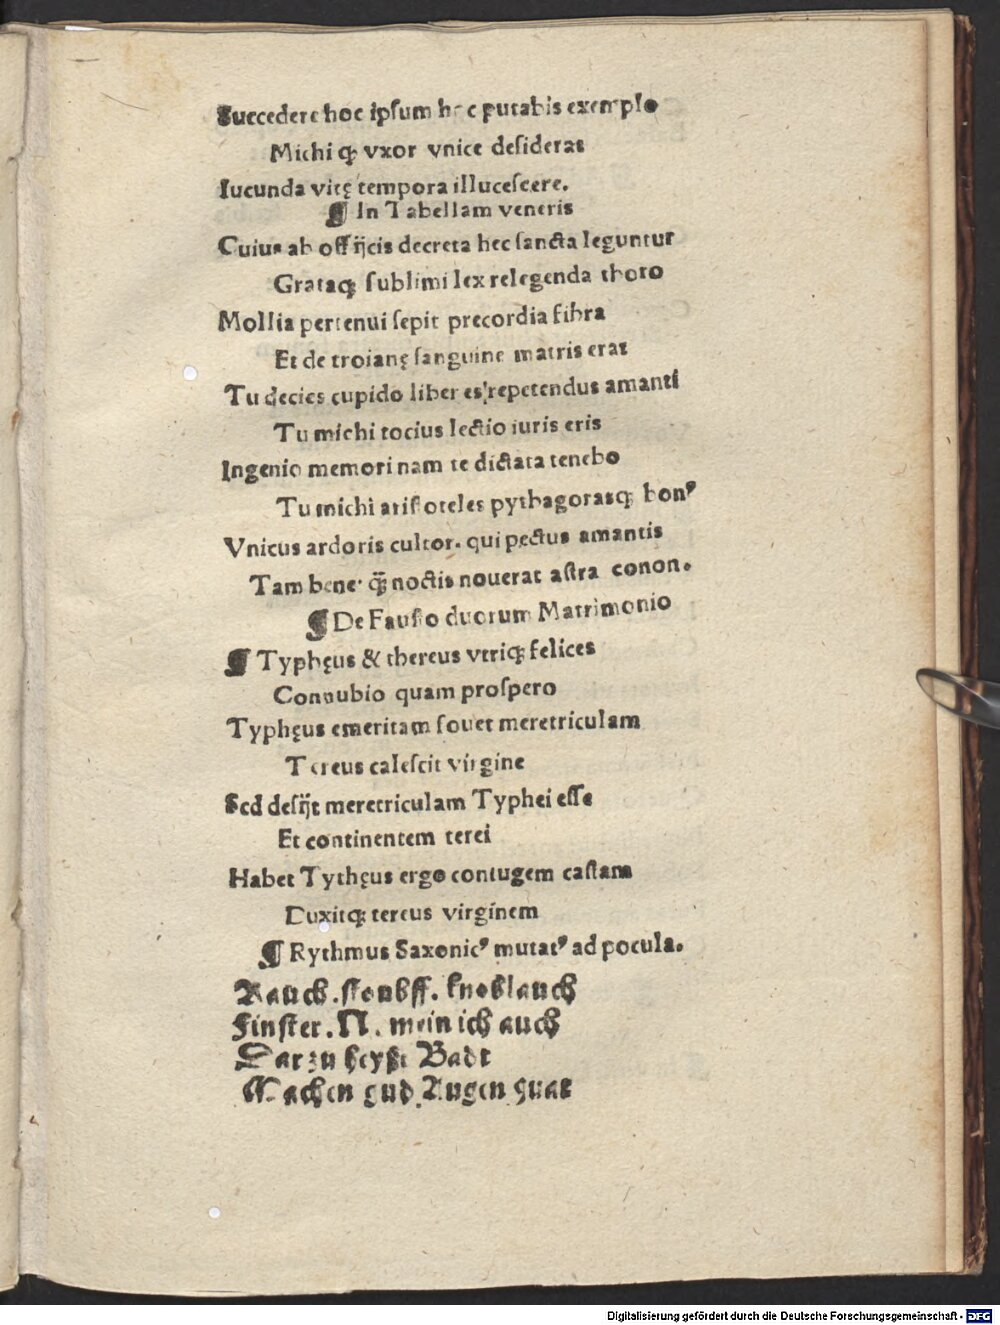 Succedere hoc ipsum hoc putabis exemplo
Michi qꝫ vxor vnice desiderat
Iucunda vitę tempora illucescere.
¶ In Tabellam veneris
Cuius ab offĳcis decreta hec sancta leguntur
Grataqꝫ sublimi lex relegenda thoro
Mollia pertenui sepit precordia fibra
Et de troianę sanguine matris erat
Tu decies cupido liber es repetendus amanti
Tu michi tocius lectio iuris eris
Ingenio memori nam te dictata tenebo
Tu michi aristoteles pythagorasqꝫ bonꝰ
Vnicus ardoris cultor. qui pectus amantis
Tam bene. q̄ꝫ noctis nouerat astra conon.
¶ De Fausto duorum Matrimonio
¶ Typhęus & thereus vtriqꝫ felices
Connubio quam prospero
Typhęus emeritam fouet meretriculam
Tereus calescit virgine
Sed desĳt meretriculam Typhei esse
Et continentem terei
Habet Tythęus ergo coniugem castam
Duxitqꝫ tereus virginem
¶ Rythmus Saxonicꝰ mutatꝰ ad pocula.
Rauch. stoubff. knoblauch
Finster. N. mein ich auch
Dar zu heyße Badt
Machen gud Augen quat
Digitalisierung gefördert durch die Deutsche Forschungsgemeinschaft - DFG